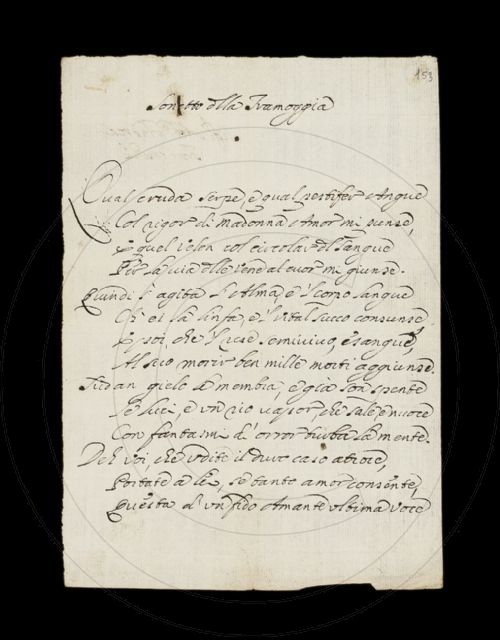 153
Sonetto della Tramoggia
Qual cruda Serpe, e qual pestifer Angue
Col rigor di Madonna Amor mi punse,
E quel velen col circolar del sangue
Per la via delle vene al cuor mi giunse.
Quindi s'agita l'Alma, e 'l corpo langue
Ch'ei la linfa, e 'l vital succo consunse
E poi che 'l rese semivivo, esangue,
Al suo morir ben mille morti aggiunse.
Sudan gielo le membra, e già son spente
Le luci, e un rio vapor che sale, e nuoce
Con fantasmi d'orror turba la mente.
Deh voi, che udite il duro caso atroce,
Portate a lei, se tanto amor consente,
Questa d'un fido Amante ultima voce